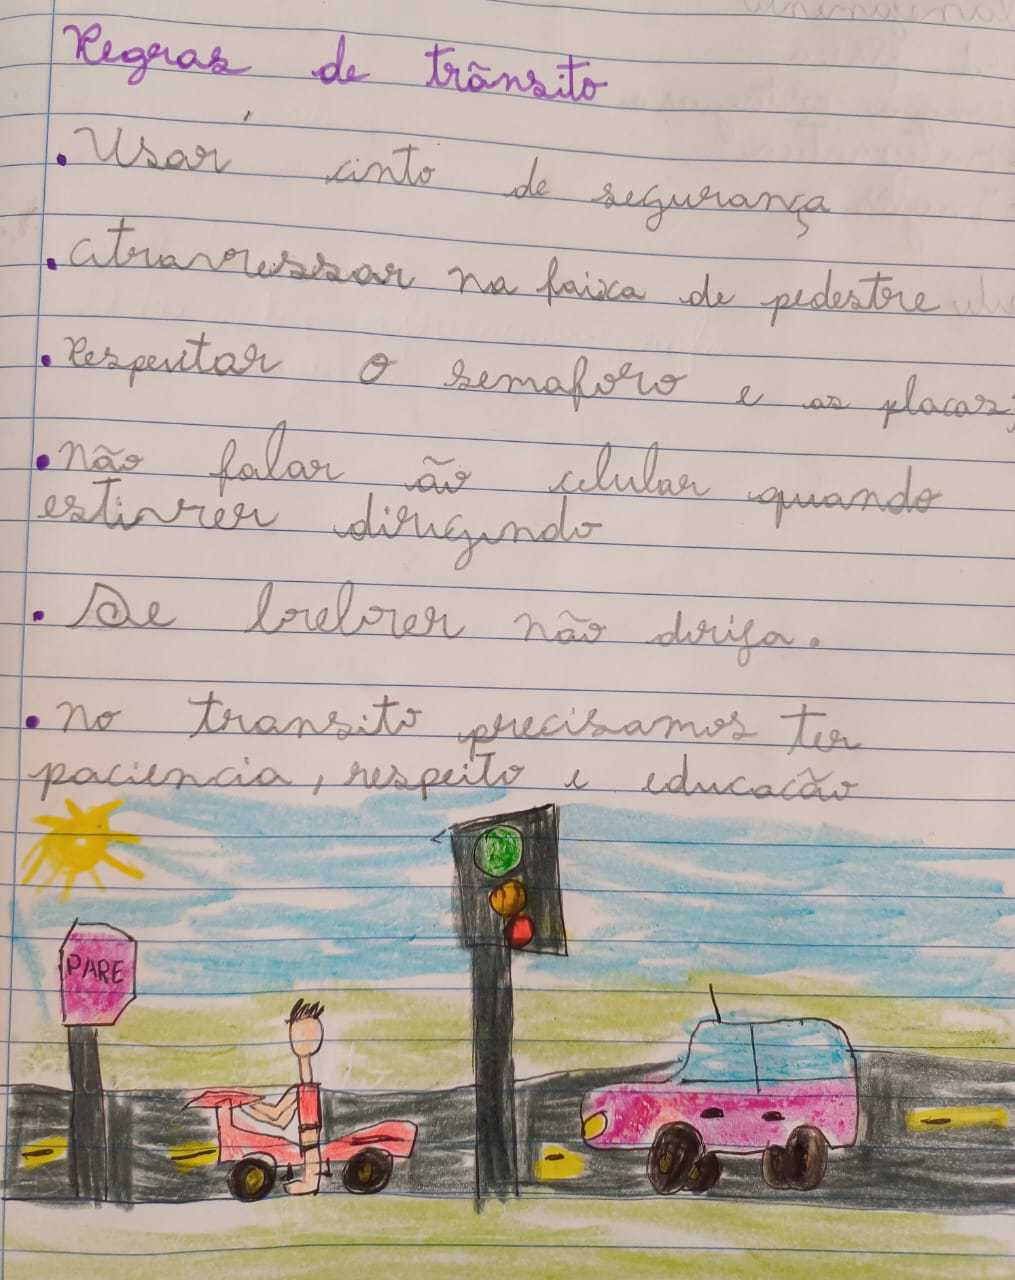 Regras de trânsito
• Usar cinto de segurança
• atravessar na faixa de pedestre
• respeitar o semaforo e as placas;
• não falar ão celular quando
estiver dirigindo
• Se beber não dirija.
• no transito precisamos ter
paciencia, respeito e educacão
PARE